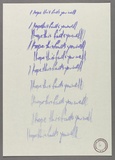 I hope this finds you well
I hope this finds you well
I hope this finds you well
I hope this finds you well
I hope this finds you well
I hope this finds you well
I hope this finds you well
I hope this finds you well
I hope this finds you well
I hope this finds you well